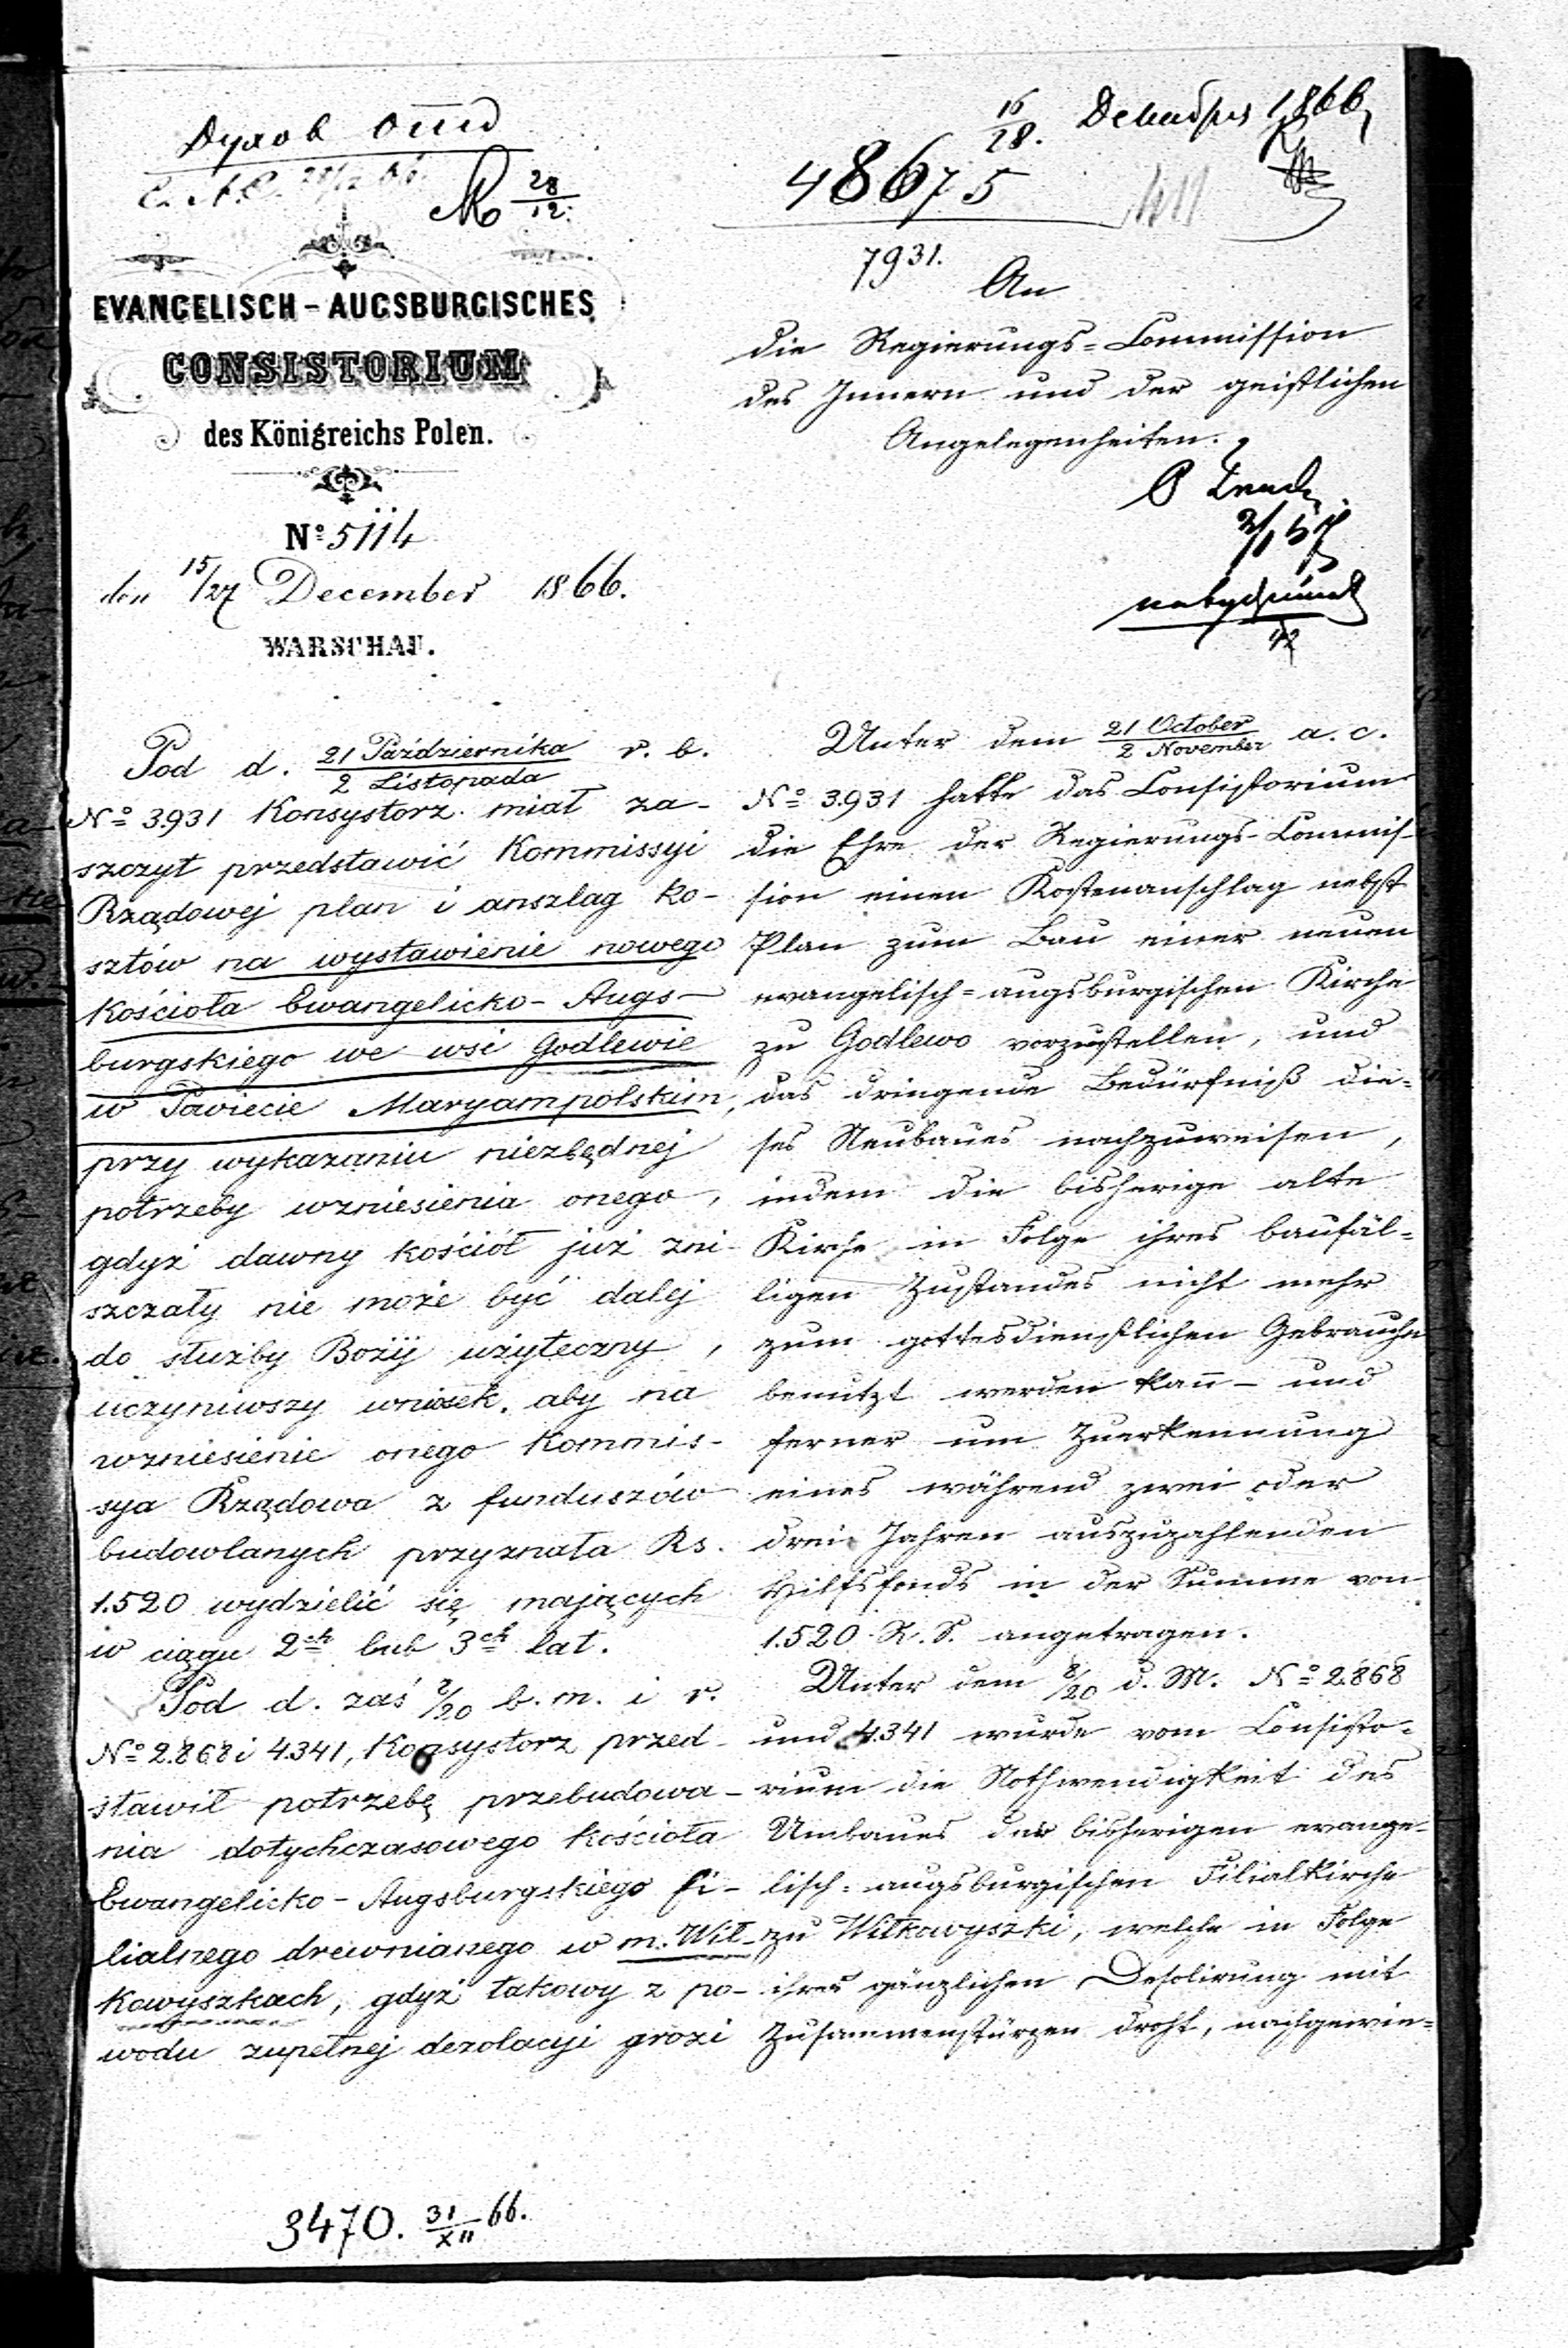 Духов отд
16/28. Декабря 1866
28/12.
48675
7931.
EVANGELISCH-AUGSBURGISCHES
CONSISTORIUM
des Königreichs Polen.
No 5114
den 15/27 December 1866.
WARSCHAU.
An
die Regierungs-Commission
des Innern und der geistlichen
Angelegenheiten.
Pod d. 21 Października / 2 Listopada r. b.
No 3.931 Konsystorz miał za-
szczyt przedstawić Kommissyi
Rządowej plan i anszlag ko-
sztów na wystawienie nowego
Kościoła Ewangelicko-Augs-
burgskiego we wsi Godlewie
w Powiecie Maryampolskim,
przy wykazaniu niezbędnej
potrzeby wzniesienia onego,
gdyż dawny kościół już zni-
szczały nie może być dalej
do służby Bożij użyteczny,
uczyniwszy wniosek, aby na
wzniesienie onego Kommis-
sya Rządowa z funduszów
budowlanych przyznała Rs.
1.520 wydzielić się mających
w ciągu 2ch lub 3ch lat.
Pod d. zaś 8/20 b. m. i r.
No 2.868 i 4.341, Konsystorz przed-
stawił potrzebę przebudowa-
nia dotychczasowego kościoła
Ewangelicko-Augsburgskiego fi-
lialnego drewnianego w m. Wił-
kowyszkach, gdyż takowy z po-
wodu zupełnej dezolacyi grozi
Unter dem 21 October / 2 November a. c.
No 3.931 hatte das Consistorium
die Ehre der Regierungs-Commis-
sion einen Kostenanschlag nebst
Plan zum Bau einer neuen
evangelisch-augsburgischen Kirche
zu Godlewo vorzustellen, und
das dringende Bedürfniß die-
ses Neubaues nachzuweisen,
indem die bisherige alte
Kirche in Folge ihres baufäl-
ligen Zustandes nicht mehr
zum gottesdienstlichen Gebrauche
benutzt werden kan̄ – und
ferner um Zuerkennung
eines während zwei oder
drei Jahren auszuzahlenden
Hilfsfonds in der Summe von
1.520 R. S. angetragen.
Unter dem 8/20 d. M. No 2.868
und 4.341 wurde vom Consisto-
rium die Nothwendigkeit des
Umbaues der bisherigen evange-
lisch-augsburgischen Filialkirche
zu Wiłkowyszki, welche in Folge
ihrer gänzlichen Desolirung mit
Zusammenstürzen droht, nachgewie-
3470. 31/XII 66.